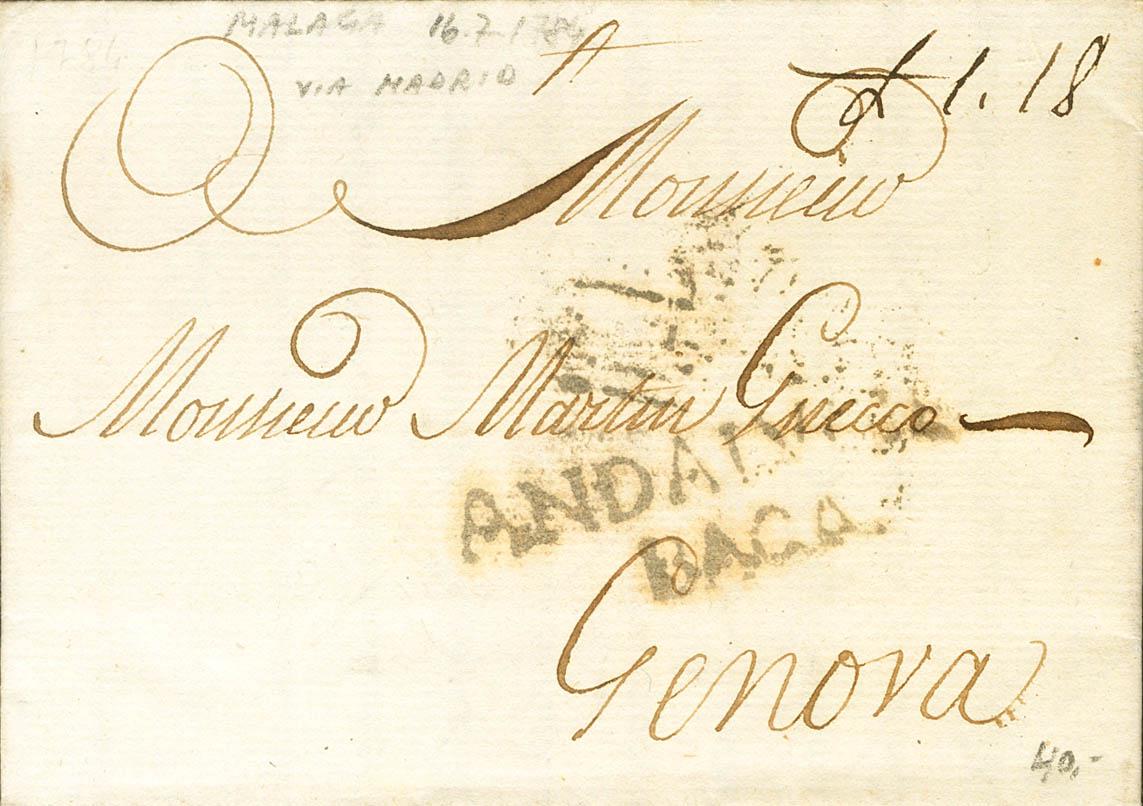 MALAGA 16.7.1784
1784
VIA MADRID
A
£ 1.18
Monsieur
Monsieur Martin Gnecco
ANDALUCIA
BAGA.
Genova
40,-